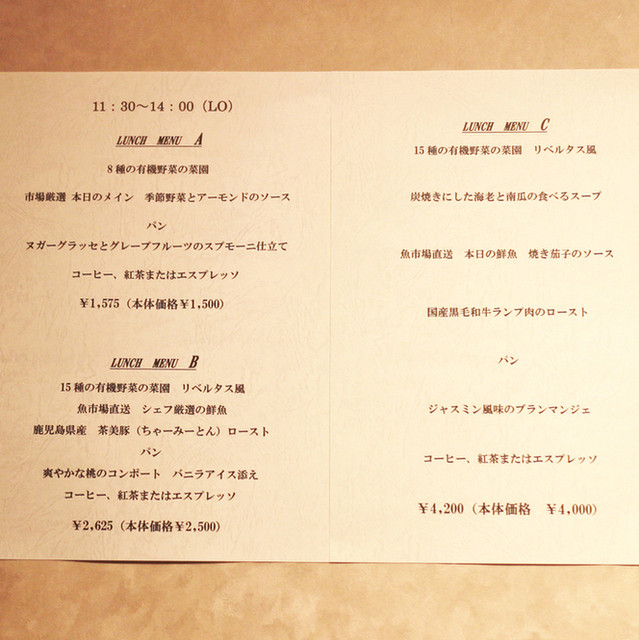 11：30～14：00（LO）
LUNCH MENU A
8種の有機野菜の菜園
市場厳選 本日のメイン 季節野菜とアーモンドのソース
パン
ヌガーグラッセとグレープフルーツのスプモーニ仕立て
コーヒー、紅茶またはエスプレッソ
￥1,575（本体価格￥1,500）
LUNCH MENU B
15種の有機野菜の菜園 リベルタス風
魚市場直送 シェフ厳選の鮮魚
鹿児島県産 茶美豚（ちゃーみーとん）ロースト
パン
爽やかな桃のコンポート バニラアイス添え
コーヒー、紅茶またはエスプレッソ
￥2,625（本体価格￥2,500）
LUNCH MENU C
15種の有機野菜の菜園 リベルタス風
炭焼きにした海老と南瓜の食べるスープ
魚市場直送 本日の鮮魚 焼き茄子のソース
国産黒毛和牛ランプ肉のロースト
パン
ジャスミン風味のブランマンジェ
コーヒー、紅茶またはエスプレッソ
￥4,200（本体価格 ￥4,000）